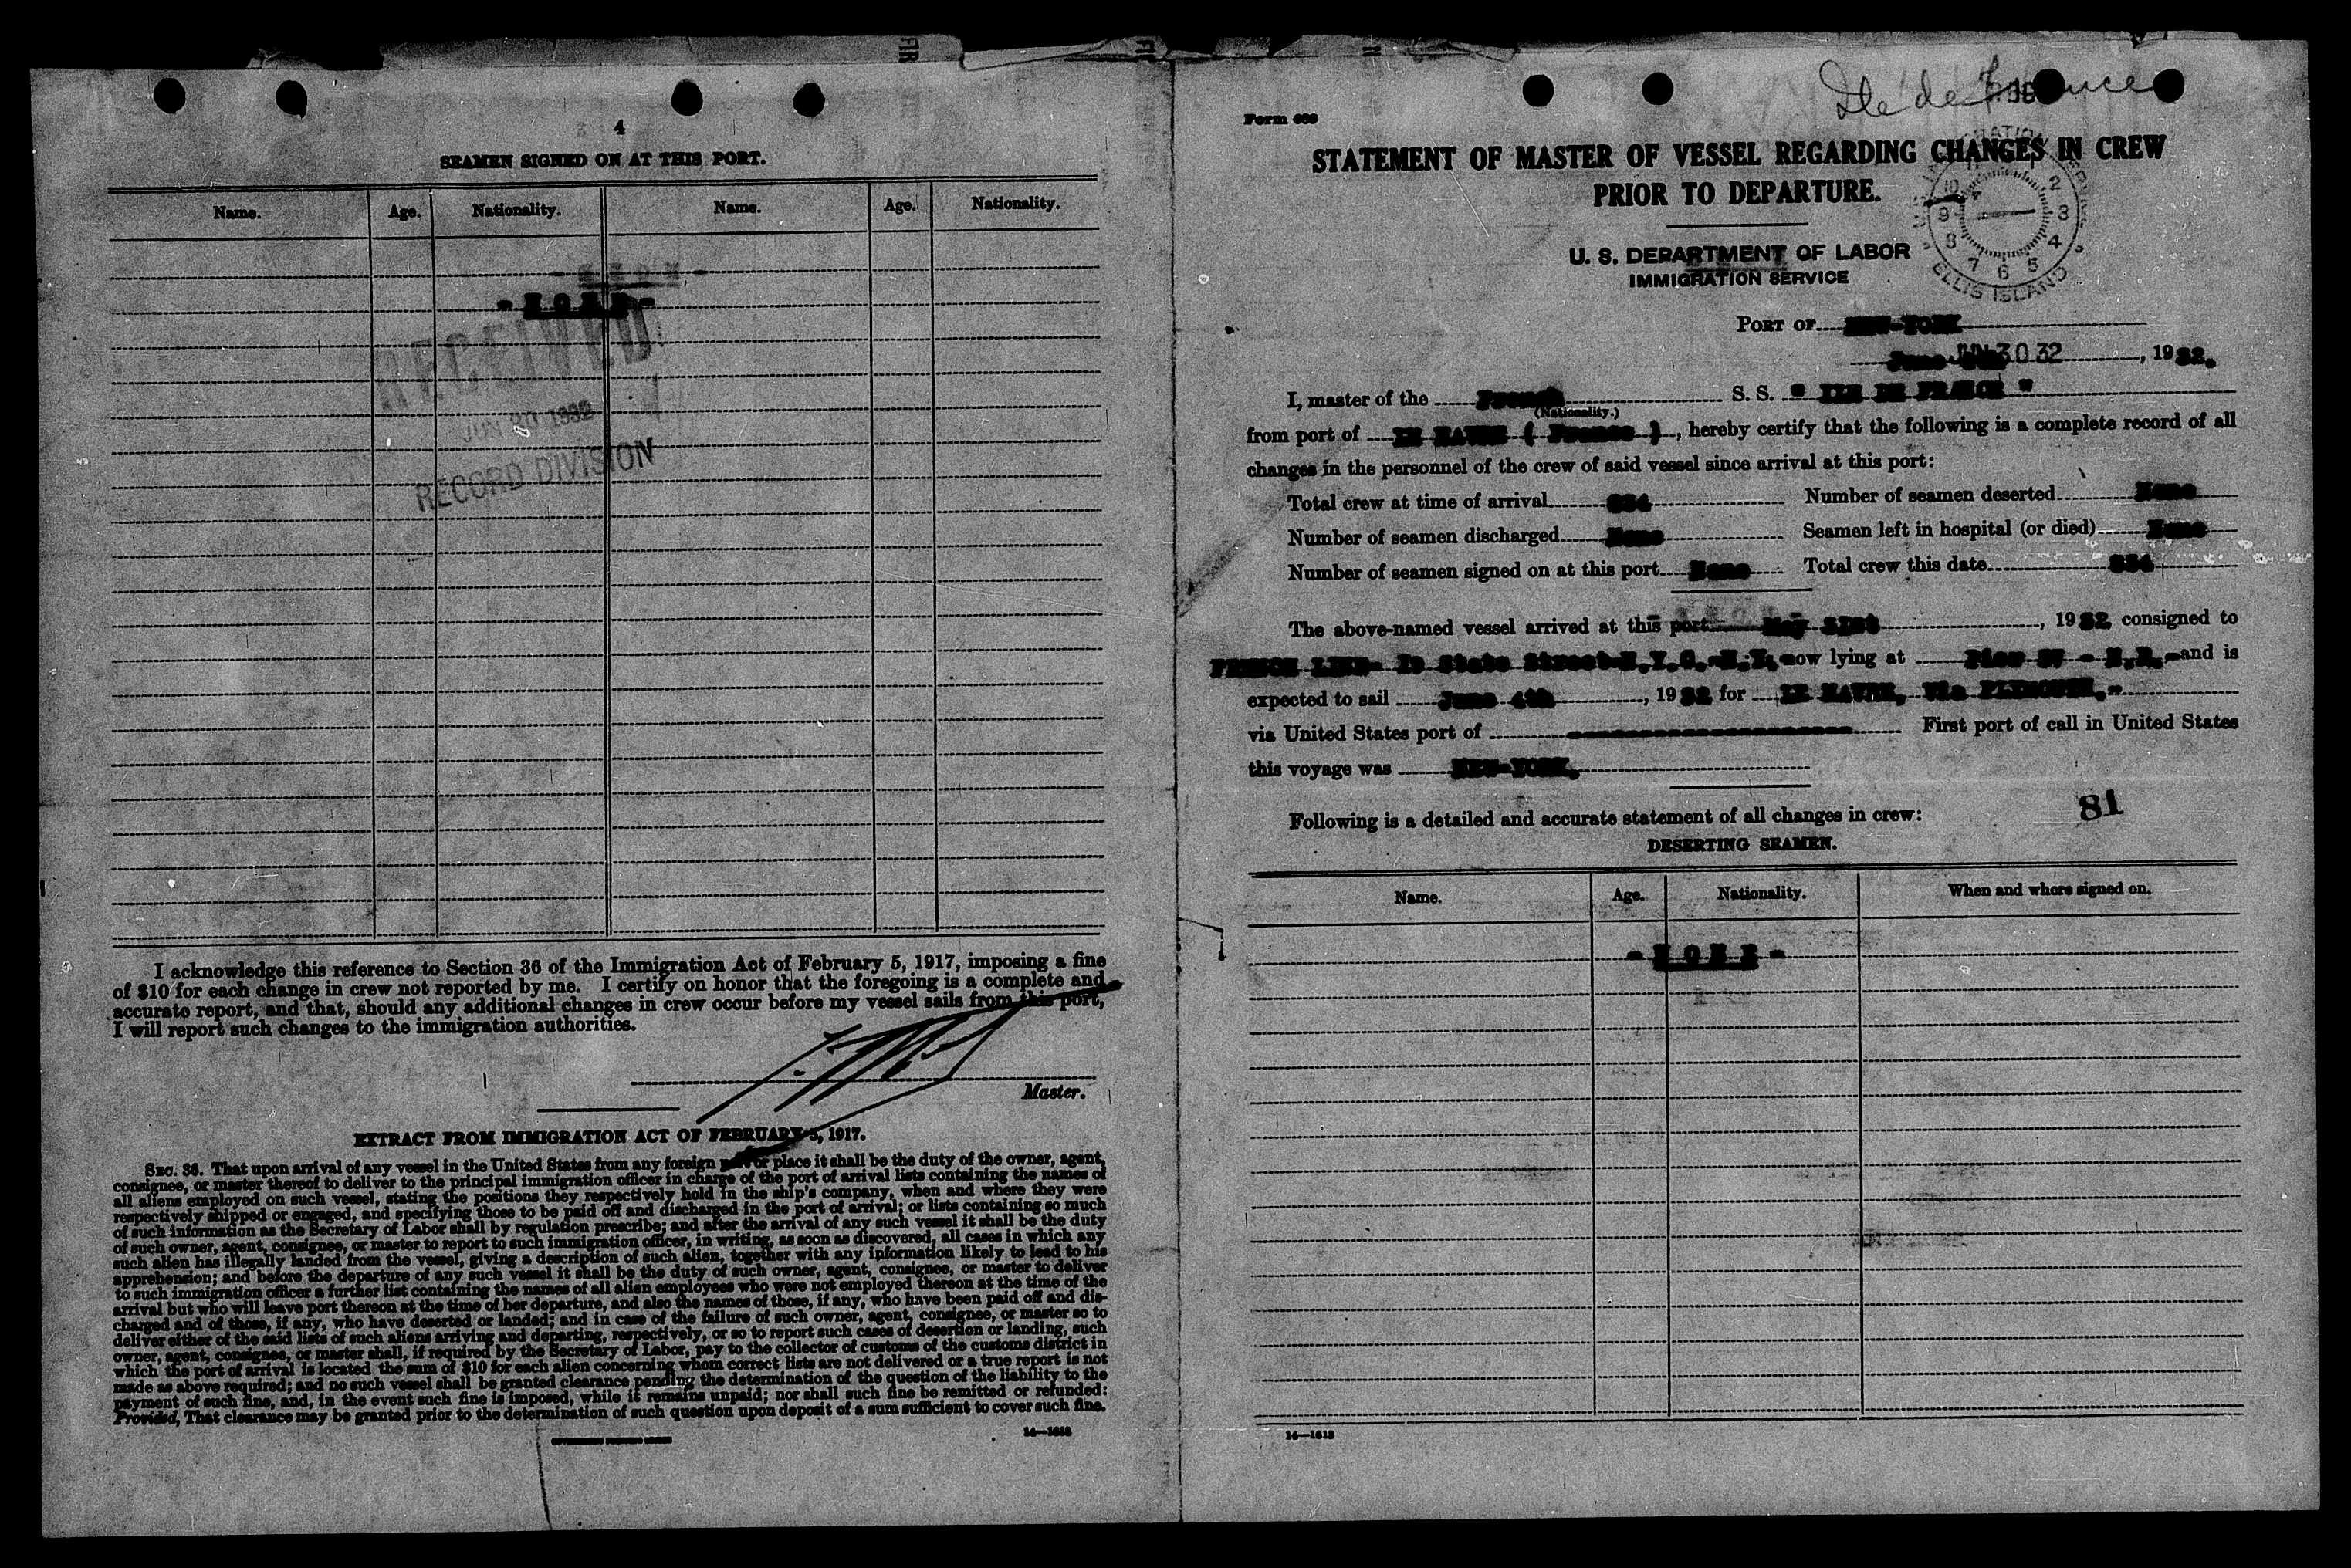 4
SEAMEN SIGNED ON AT THIS PORT.
Name. Age. Nationality. Name. Age. Nationality.
- N O N E -
RECEIVED
JUN 30 1932
RECORD DIVISION
I acknowledge this reference to Section 36 of the Immigration Act of February 5, 1917, imposing a fine
of $10 for each change in crew not reported by me. I certify on honor that the foregoing is a complete and
accurate report, and that, should any additional changes in crew occur before my vessel sails from this port,
I will report such changes to the immigration authorities.
Master.
EXTRACT FROM IMMIGRATION ACT OF FEBRUARY 5, 1917.
SEC. 36. That upon arrival of any vessel in the United States from any foreign port or place it shall be the duty of the owner, agent,
consignee, or master thereof to deliver to the principal immigration officer in charge of the port of arrival lists containing the names of
all aliens employed on such vessel, stating the positions they respectively hold in the ship's company, when and where they were
respectively shipped or engaged, and specifying those to be paid off and discharged in the port of arrival; or lists containing so much
of such information as the Secretary of Labor shall by regulation prescribe; and after the arrival of any such vessel it shall be the duty
of such owner, agent, consignee, or master to report to such immigration officer, in writing, as soon as discovered, all cases in which any
such alien has illegally landed from the vessel, giving a description of such alien, together with any information likely to lead to his
apprehension; and before the departure of any such vessel it shall be the duty of such owner, agent, consignee, or master to deliver
to such immigration officer a further list containing the names of all alien employees who were not employed thereon at the time of the
arrival but who will leave port thereon at the time of her departure, and also the names of those, if any, who have been paid off and dis-
charged and of those, if any, who have deserted or landed; and in case of the failure of such owner, agent, consignee, or master so to
deliver either of the said lists of such aliens arriving and departing, respectively, or so to report such cases of desertion or landing, such
owner, agent, consignee, or master shall, if required by the Secretary of Labor, pay to the collector of customs of the customs district in
which the port of arrival is located the sum of $10 for each alien concerning whom correct lists are not delivered or a true report is not
made as above required; and no such vessel shall be granted clearance pending the determination of the question of the liability to the
payment of such fine, and, in the event such fine is imposed, while it remains unpaid; nor shall such fine be remitted or refunded:
Provided, That clearance may be granted prior to the determination of such question upon deposit of a sum sufficient to cover such fine.
14—1613
Ile de France
Form 689
STATEMENT OF MASTER OF VESSEL REGARDING CHANGES IN CREW
PRIOR TO DEPARTURE.
U. S. DEPARTMENT OF LABOR
IMMIGRATION SERVICE
2 3 4 5 6 7 8 9 10
ELLIS ISLAND
PORT OF NEW-YORK
June JUN 30 32, 1932.
I, master of the French S. S. " ILE DE FRANCE "
(Nationality.)
from port of LE HAVRE ( France ), hereby certify that the following is a complete record of all
changes in the personnel of the crew of said vessel since arrival at this port:
Total crew at time of arrival 634 Number of seamen deserted None
Number of seamen discharged None Seamen left in hospital (or died) None
Number of seamen signed on at this port None Total crew this date 634
The above-named vessel arrived at this port May 31st, 1932 consigned to
FRENCH LINE- 19 State Street-N.Y.C.-N.Y. now lying at Pier 57 - N.R.- and is
expected to sail June 4th, 1932 for LE HAVRE, Via PLYMOUTH.-
via United States port of First port of call in United States
this voyage was NEW-YORK.
Following is a detailed and accurate statement of all changes in crew:
81
DESERTING SEAMEN.
Name. Age. Nationality. When and where signed on.
- N O N E -
14—1613